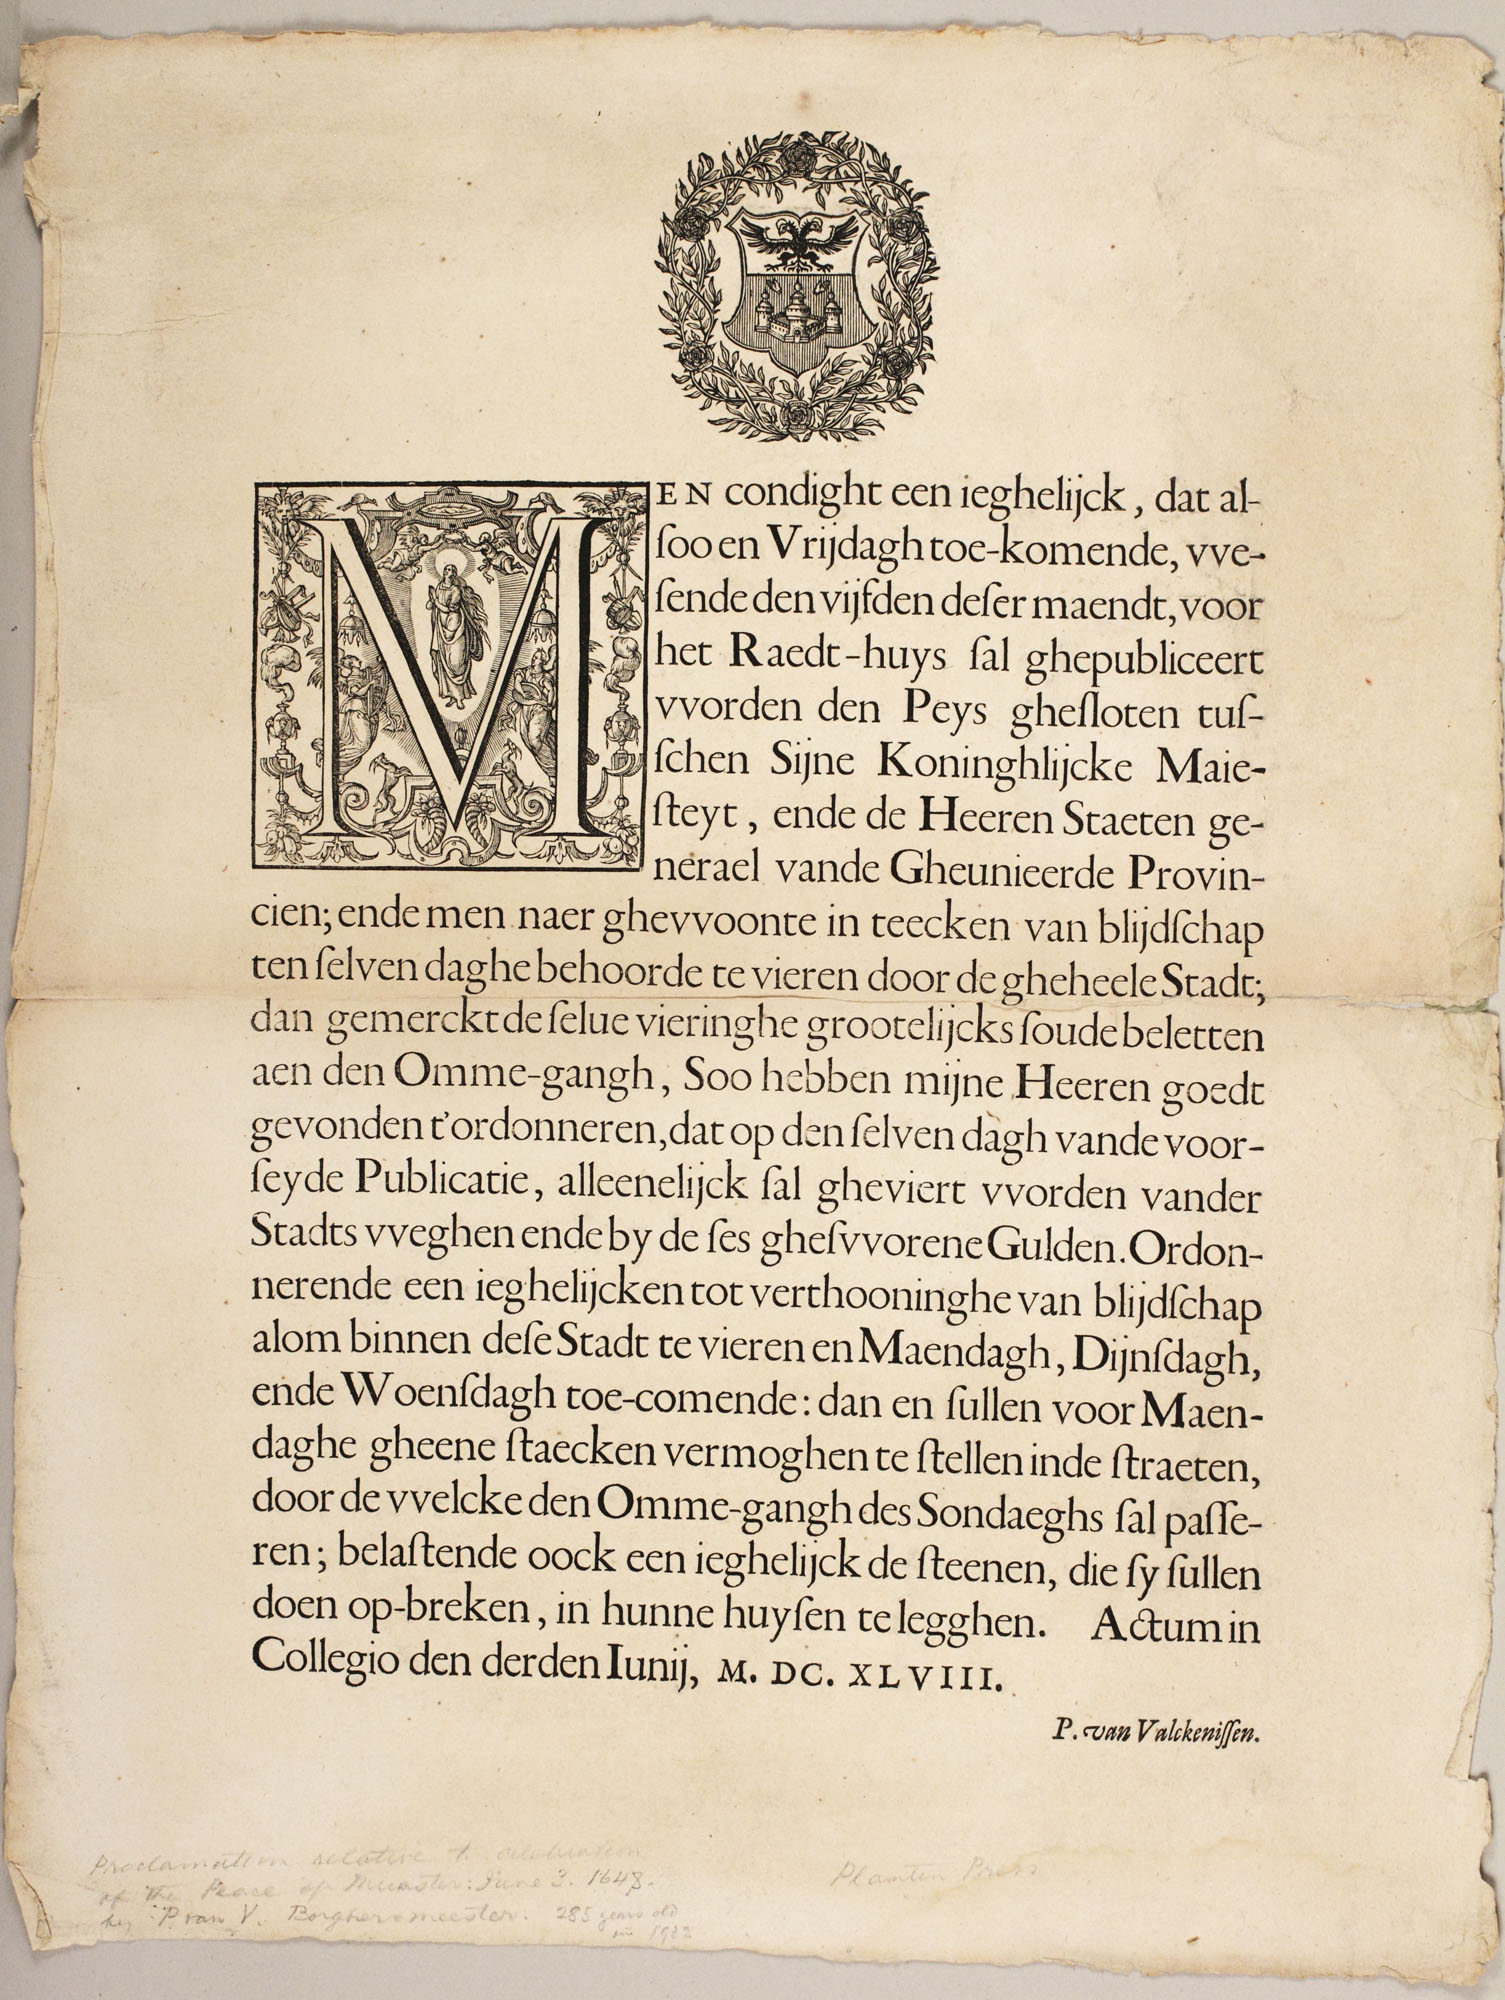 MEN condight een ieghelijck, dat al-
ſoo en Vrijdagh toe-komende, vve-
ſende den vijfden deſer maendt, voor
het Raedt-huys ſal ghepubliceert
vvorden den Peys gheſloten tuſ-
ſchen Sijne Koninghlijcke Maie-
ſteyt, ende de Heeren Staeten ge-
nerael vande Gheunieerde Provin-
cien; ende men naer ghevvoonte in teecken van blijdſchap
ten ſelven daghe behoorde te vieren door de gheheele Stadt;
dan gemerckt de ſelue vieringhe grootelijcks ſoude beletten
aen den Omme-gangh, Soo hebben mijne Heeren goedt
gevonden t'ordonneren, dat op den ſelven dagh vande voor-
ſeyde Publicatie, alleenelijck ſal gheviert vvorden vander
Stadts vveghen ende by de ſes gheſvvorene Gulden. Ordon-
nerende een ieghelijcken tot verthooninghe van blijdſchap
alom binnen deſe Stadt te vieren en Maendagh, Dijnſdagh,
ende Woenſdagh toe-comende: dan en ſullen voor Maen-
daghe gheene ſtaecken vermoghen te ſtellen inde ſtraeten,
door de vvelcke den Omme-gangh des Sondaeghs ſal paſſe-
ren; belaſtende oock een ieghelijck de ſteenen, die ſy ſullen
doen op-breken, in hunne huyſen te legghen. Actum in
Collegio den derden Iunij, M. DC. XLVIII.
P. van Valckeniſſen.
Proclamation relative to celebration
of the Peace of Munster: June 3. 1648.
by P. van V. Borghermeester. 285 years old
in
Plantin Press